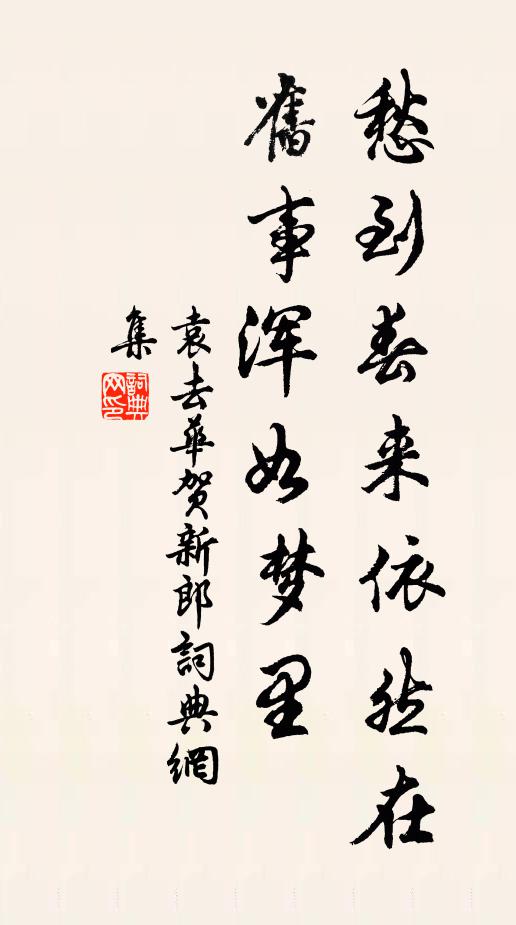 愁到春来依然在
舊事浑如梦里
袁去華贺新郎詞典網
集
詞典網印